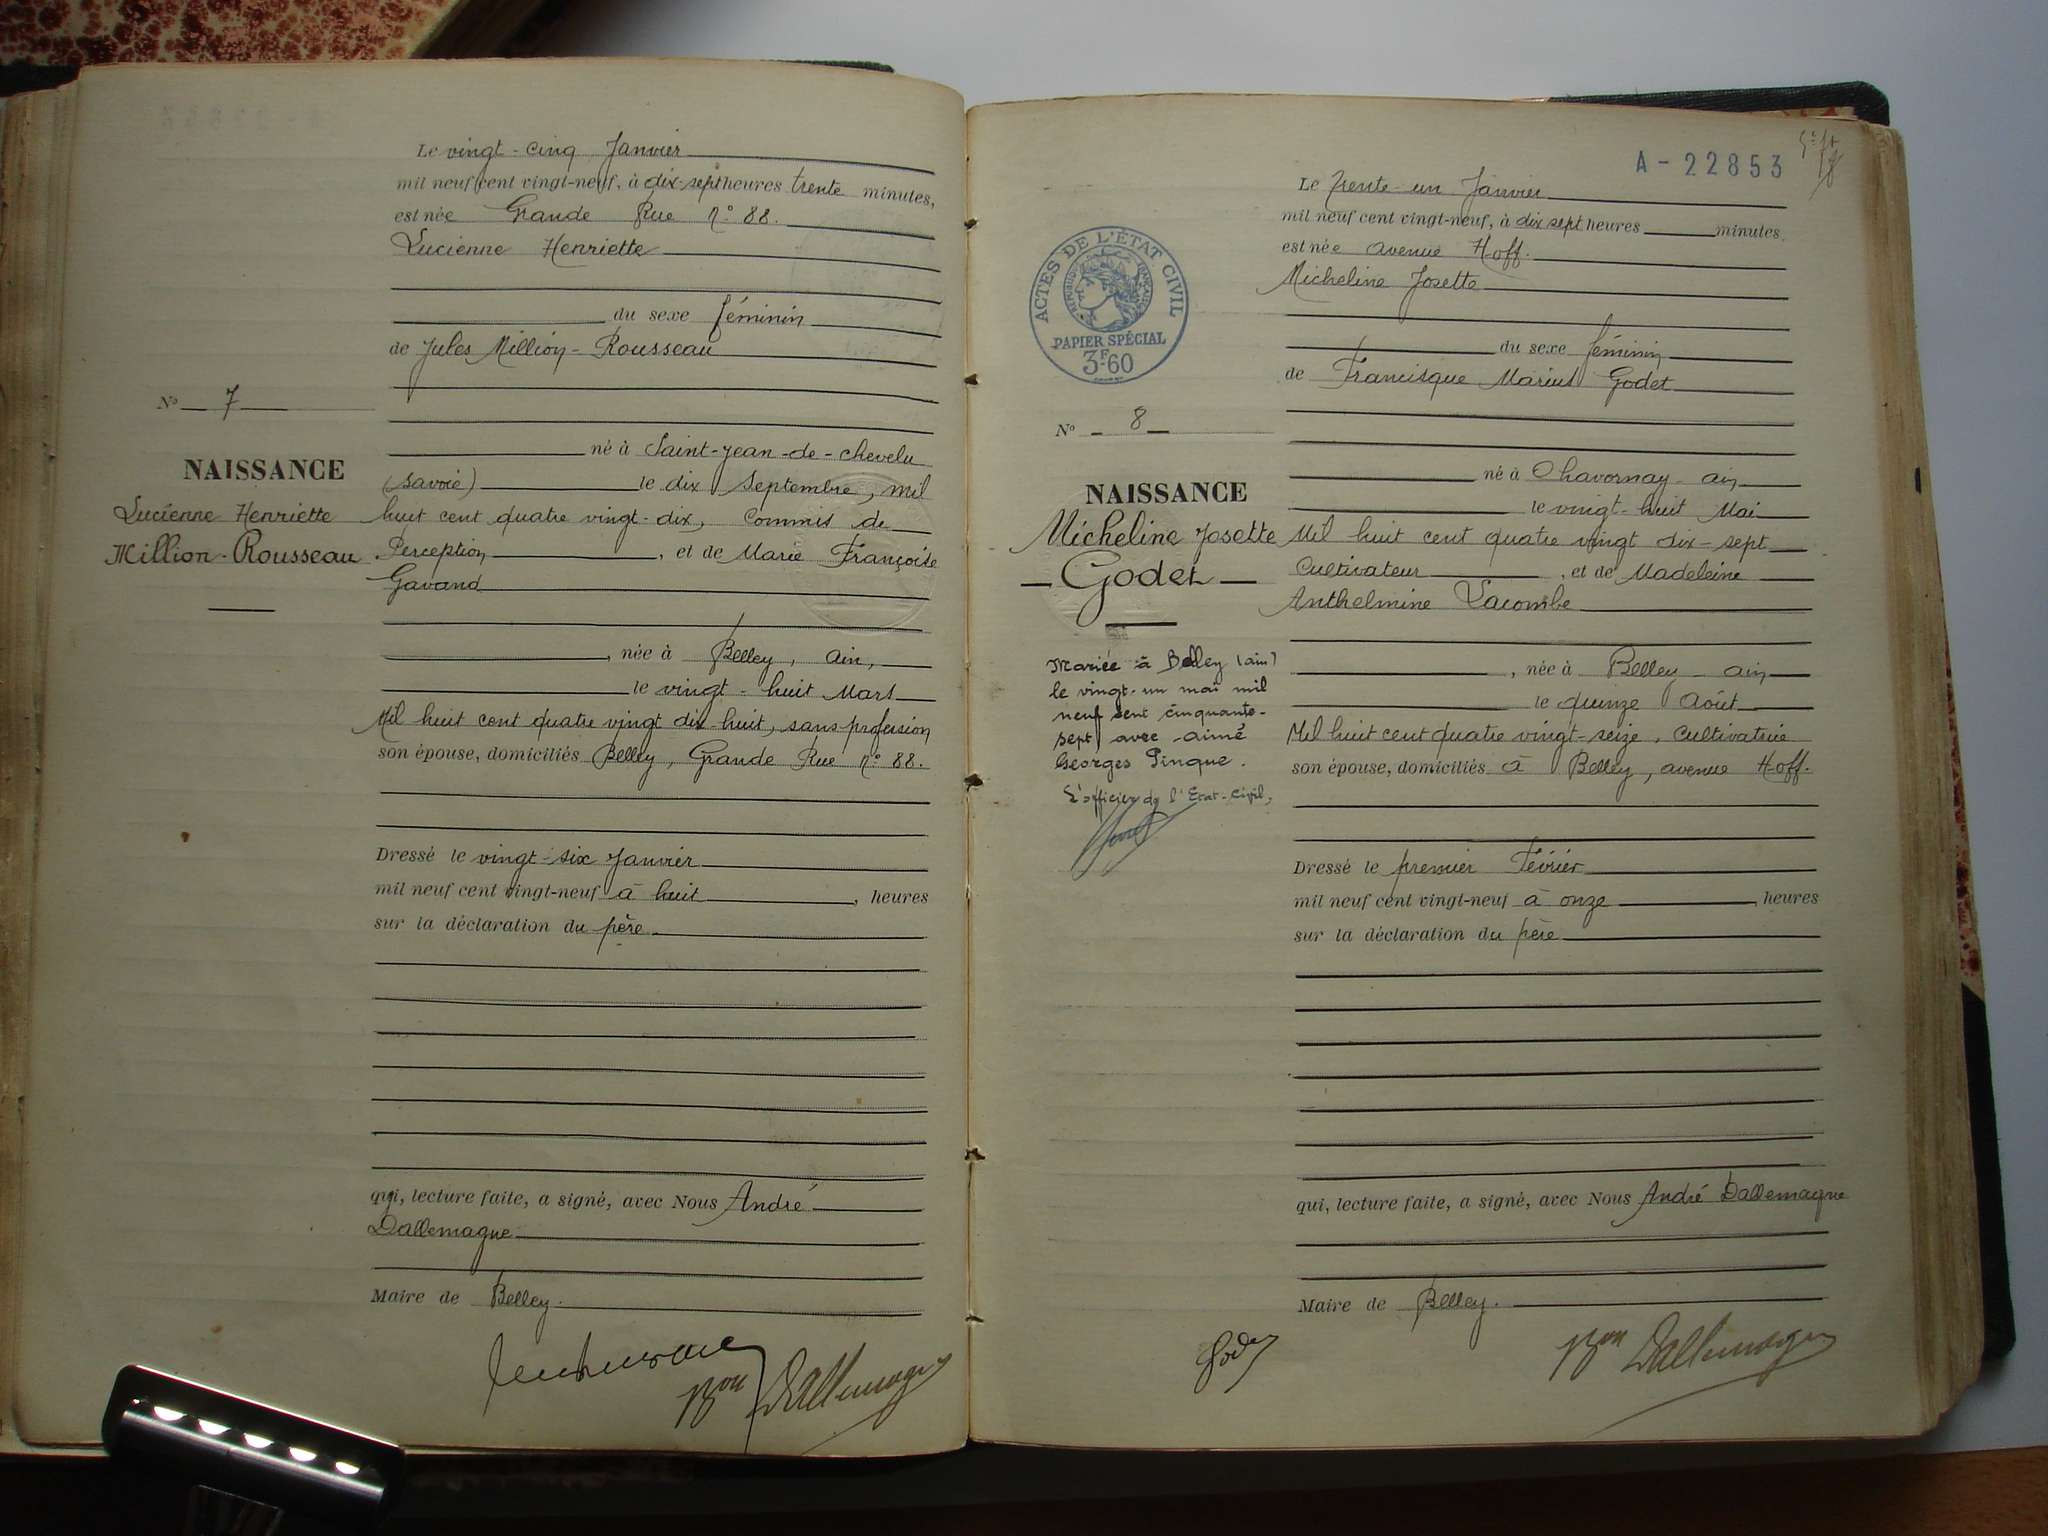 Le vingt-cinq Janvier
mil neuf cent vingt-neuf, à dix-sept heures trente minutes,
est née Grande Rue n° 88.
Lucienne Henriette
du sexe féminin
de Jules Million-Rousseau
né à Saint-Jean-de-chevelu
(Savoie) le dix Septembre, mil
huit cent quatre vingt-dix, Commis de
Perception, et de Marie Françoise
Gavand
, née à Belley, ain,
le vingt-huit Mars
Mil huit cent quatre vingt dix-huit, sans profession
son épouse, domiciliés Belley, Grande Rue n° 88.
Dressé le vingt-six Janvier
mil neuf cent vingt-neuf à huit, heures
sur la déclaration du père
qui, lecture faite, a signé, avec Nous André
Dallemagne
Maire de Belley.
N° 7
NAISSANCE
Lucienne Henriette
Million-Rousseau
Bon Dallemagne
A-22853
ACTES DE L'ÉTAT CIVIL
RÉPUBLIQUE FRANÇAISE
PAPIER SPÉCIAL
3F.60
N° 8
NAISSANCE
Micheline Josette
Godet
Mariée à Belley (ain)
le vingt-un mai mil
neuf sent cinquante-
sept, avec aimé
Georges Pinque.
L'officier de l'Etat-Civil,
Le Trente-un Janvier
mil neuf cent vingt-neuf, à dix sept heures minutes
est née avenue Hoff.
Micheline Josette
du sexe féminin
de Francisque Marius Godet
né à Chavornay-ain
le vingt-huit Mai
Mil huit cent quatre vingt dix-sept
Cultivateur, et de Madeleine
Anthelmine Lacombe
, née à Belley-ain
le quinze Août
Mil huit cent quatre vingt-seize, Cultivatrice
son épouse, domiciliés à Belley, avenue Hoff.
Dressé le premier Février
mil neuf cent vingt-neuf à onze, heures
sur la déclaration du père
qui, lecture faite, a signé, avec Nous André Dallemagne
Maire de Belley.
Godet
Bon Dallemagne